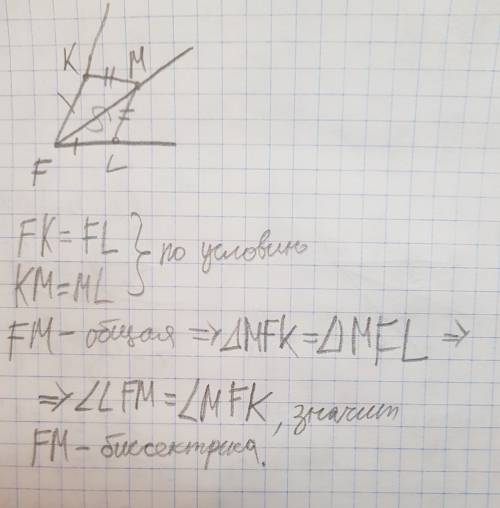 K M
F L
FK = FL } по условию
KM = ML
FM – общая ⇒ △MFK = △MFL ⇒
⇒ ∠LFM = ∠MFK, значит
FM – биссектриса.